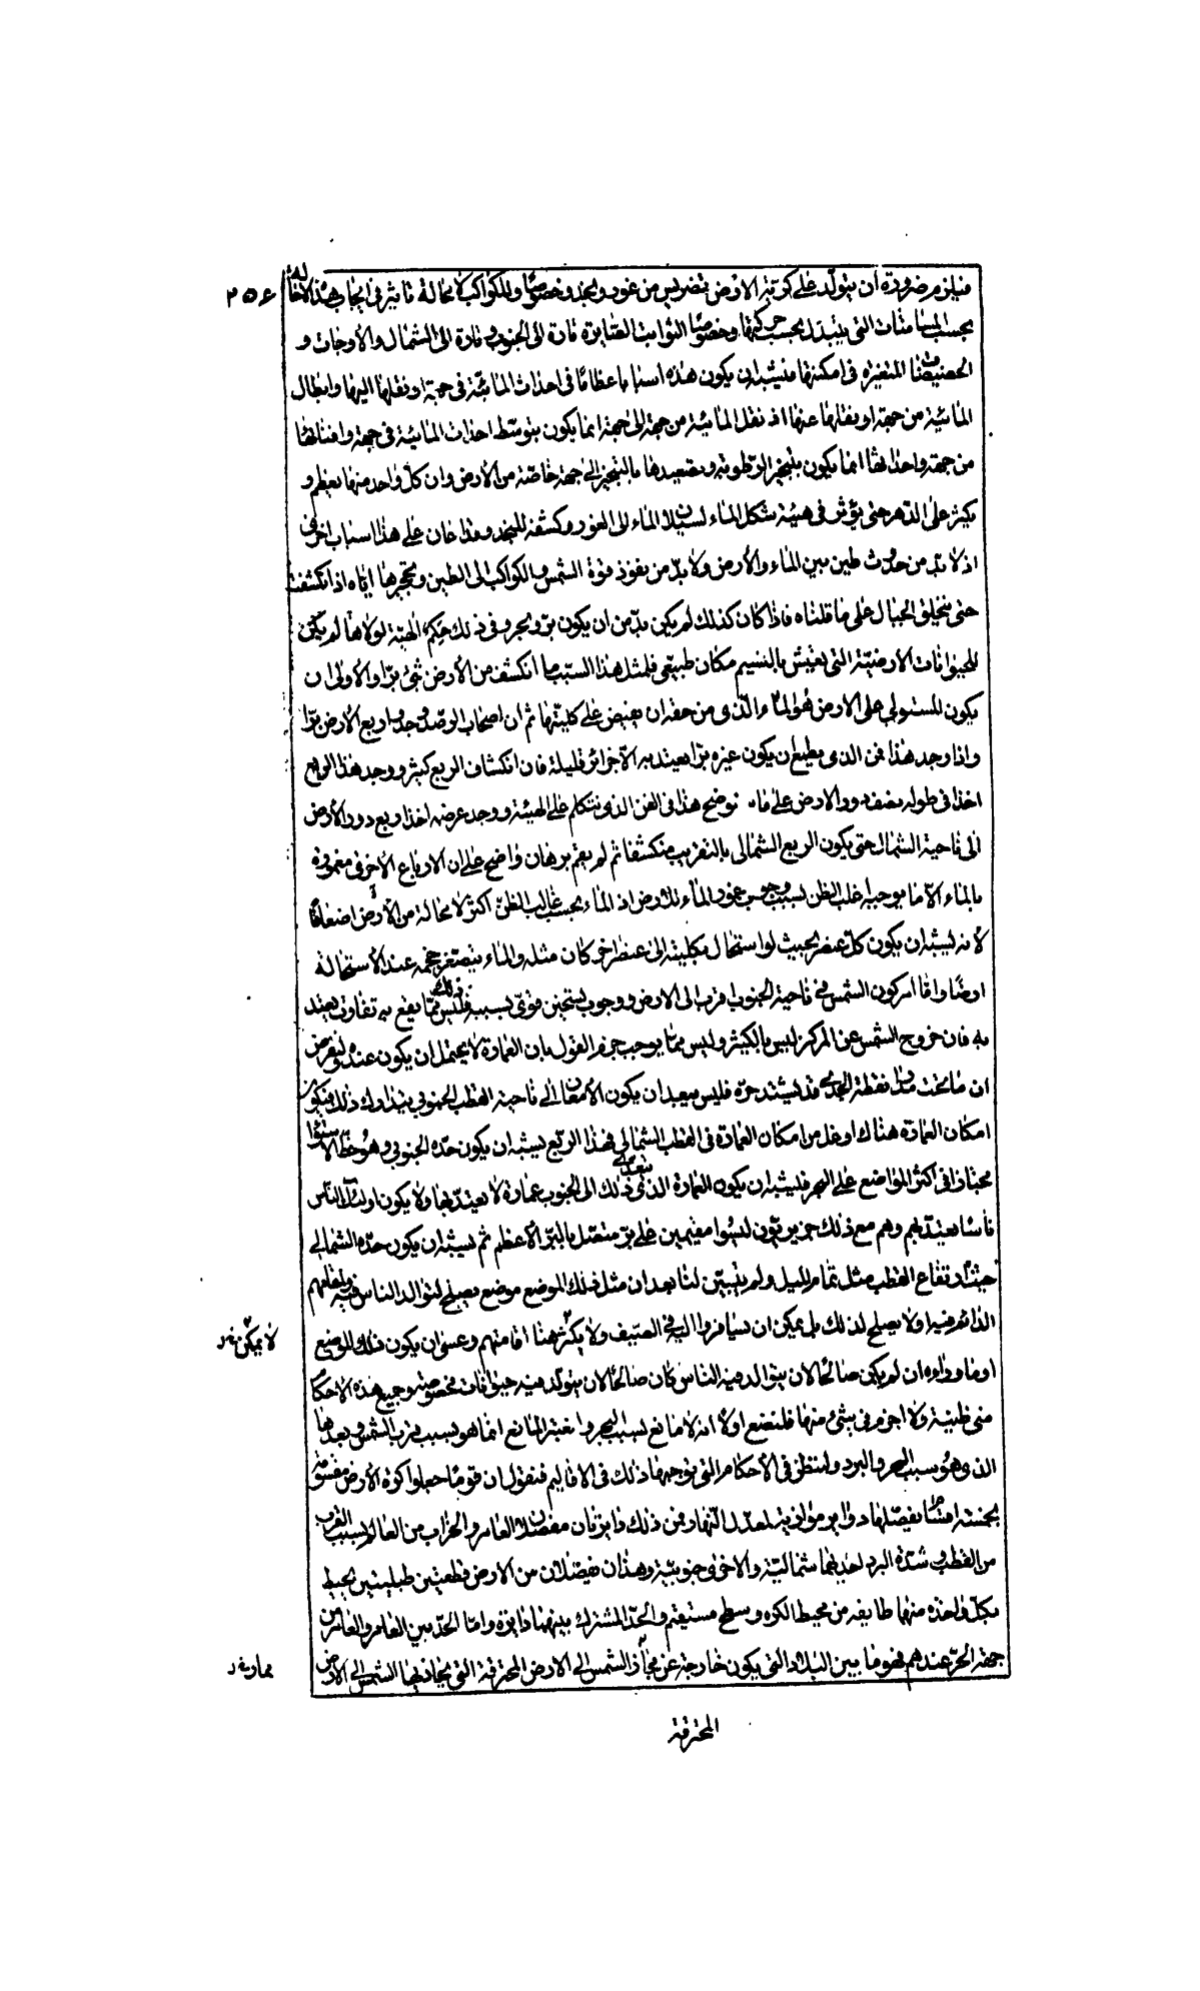 فيلزم ضرورة أن يتولد على كرية الارض تضريس من غور ونجد وخصوصا وللكواكب لا محالة تاثير فى ايجاب هذه الاحالة ٢٥٤
بحسب المسامتات التى يتبدل بحسب حركتها وخصوصا الثوابت الصايرة تارة الى الجنوب وتارة الى الشمال والاوجات و
الحضيضات المتغيرة فى امكنتها فيشبه ان يكون هذه اسبابا عظاما فى احداث المائية فى جهة او نقلها اليها وابطال
المائية من جهة او نقلها عنها اذ نقل المائية من جهة الى جهة انما يكون بتوسط احداث المائية فى جهة وافنائها
من جهة واحداثها انما يكون بتبخير الرطوبة وتصعيدها بالتبخير الى جهة خاصة من الارض وان كل واحد منها يعظم و
يكثر على الدهر حتى يؤثر فى هيئة شكل الماء لسيلان الماء الى الغور وكشفه للنجد وقد اعان على هذا اسباب اخرى
اذ لا بد من حدوث طين بين الماء والارض ولا بد من نفوذ قوة الشمس والكواكب الى الطين وتحجيرها اياه اذا انكشفت
حتى يتخلق الجبال على ما قلناه فاذا كان كذلك لم يكن بد من ان يكون بر وبحر وفى ذلك حكم الهية لولاها لم يكن
للحيوانات الارضية التى تعيش بالنسيم مكان طبيعى فلمثل هذا السبب ما انكشف من الارض شئ برا والاولى ان
يكون للمستولى على الارض هو الماء الذى من حقه ان يفيض على كليتها ثم ان اصحاب الرصد وجدوا ربع الارض برا
واذا وجد هذا فمن الذى يطمع ان يكون غيره برا يعتد به الا جزائر قليلة فان انكشاف الربع كثير ووجد هذا الربع
اخذا فى طوله نصف دور الارض على ما نوضح هذا فى الفن الذى نتكلم على الهيئة ووجد عرضه اخذا ربع دور الارض
الى ناحية الشمال حتى يكون الربع الشمالى بالتقريب منكشفا ثم لم يقم برهان واضح على ان الارباع الاخرى مغمورة
بالماء الا ما يوجبه اغلب الظن بسبب وجوب غمور الماء للارض اذ الماء بحسب غالب الظن اكثر لا محالة من الارض اضعافا
لانه يشبه ان يكون كل عنصر بحيث لو استحال بكليته الى عنصر اخر كان مثله والماء يتصغر حجمه عند الاستحالة
ارضا واما امر كون الشمس فى ناحية الجنوب اقرب الى الارض ووجوب تسخين قوى بسببه فليس ذلك مما يقع به تفاوت يعتد
به فان خروج الشمس عن المركز ليس بالكثير وليس مما يوجب جزم القول بان العمارة لا يحتمل ان يكون عنده ولنفرض
ان ما تحت مدار نقطة الجدى قد يشتد حره فليس ببعيد ان يكون الامعان الى ناحية القطب الجنوبى يتدارك ذلك فيكون
امكان العمارة هناك اوغل من امكان العمارة فى القطب الشمالى فهذا الربع يشبه ان يكون حده الجنوبى وهو خط الاستواء
مجتازا فى اكثر المواضع على البحر فليشبه ان يكون العمارة الذى يتعدى ذلك الى الجنوب عمارة لا يعتد بها ولا يكون اولئك الناس
ناسا يعتد بهم وهم مع ذلك جزيريون ليسوا مقيمين على بر متصل بالبر الاعظم ثم يشبه ان يكون حده الشمالى
حيث ارتفاع القطب مثل تمام الميل ولم يتبين لنا بعد ان مثل ذلك الموضع موضع يصلح لتوالد الناس فيه ومقامهم
الدائم فيه او لا يصلح لذلك بل يمكن ان يسافروا اليه فى الصيف ولا يكثر هنا اقامتهم وعسى ان يكون ذلك الموضع
لا يمكن خ‌ر
او ما وراءه ان لم يكن صالحا لان يتوالد فيه الناس كان صالحا لان يتولد فيه حيوانات مخصوصة وجميع هذه الاحكام
منى ظنية ولا اجزم فى شئ منها فلنضع اولا انه لا مانع بسبب البحر وانما المانع انما هو بسبب قرب الشمس وبعدها
الذى هو سبب الحر والبرد ولننظر فى الاحكام التى يوجبها ذلك فى الاقاليم فنقول ان قوما جعلوا كرة الارض مقسومة
بخمسة اقسام يفصلها دوائر موازية لمعدل النهار فمن ذلك دائرتان مفصلان العامر والخراب من العالم بسبب القرب
من القطب وشدة البرد احديهما شمالية والاخرى جنوبية وهذان يفصلان من الارض قطعتين طبليتين يحيط
بكل واحدة منهما طايفة من محيط الكرة وسطح مستقيم والحد المشترك بينهما دايرة واما الحد بين العامر والغامر من
جهة الحر عندهم فهو ما بين البلاد التى يكون خارجة عن محاذاة الشمس الى الارض المحترقة التى يحاذيها الشمس الى الارض
المحترقة